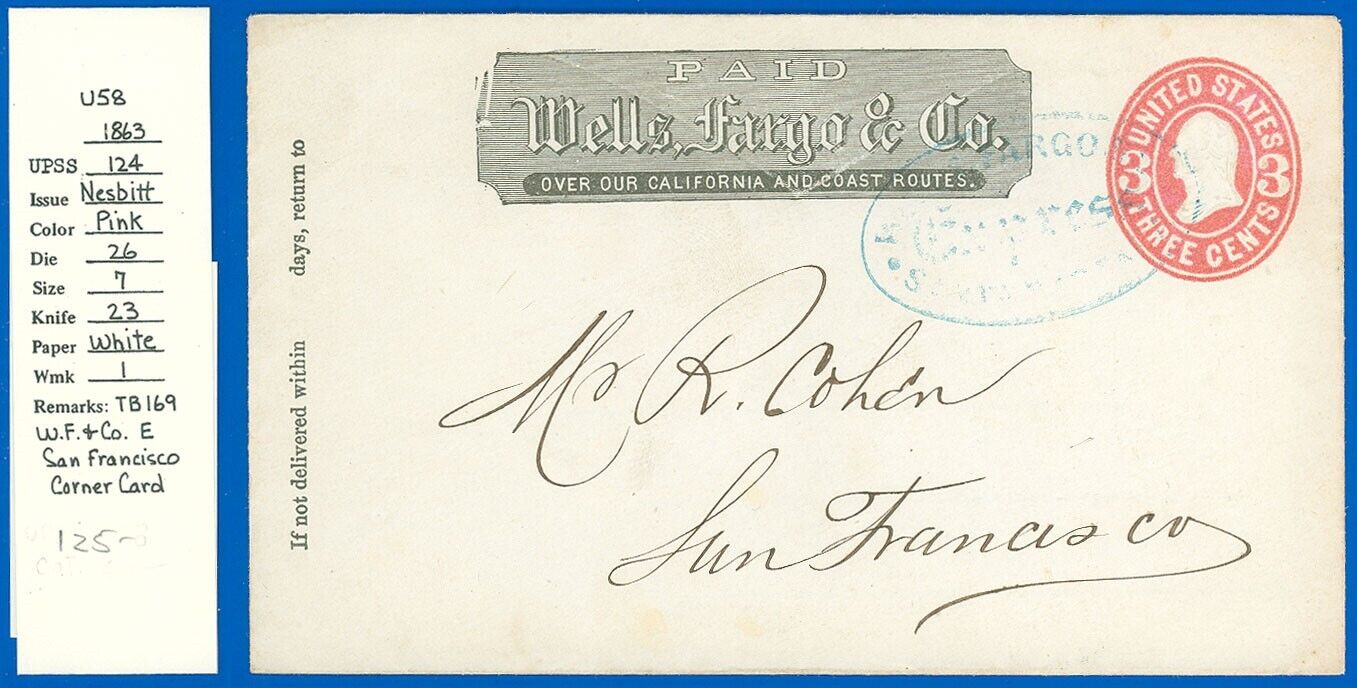 U58
1863
UPSS 124
Issue Nesbitt
Color Pink
Die 26
Size 7
Knife 23
Paper White
Wmk 1
Remarks: TB169
W.F. & Co. E
San Francisco
Corner Card
125-
If not delivered within days, return to
PAID
Wells, Fargo & Co.
OVER OUR CALIFORNIA AND COAST ROUTES.
FARGO
Express
UNITED STATES
3 3
THREE CENTS
Mr R. Cohen
San Francisco